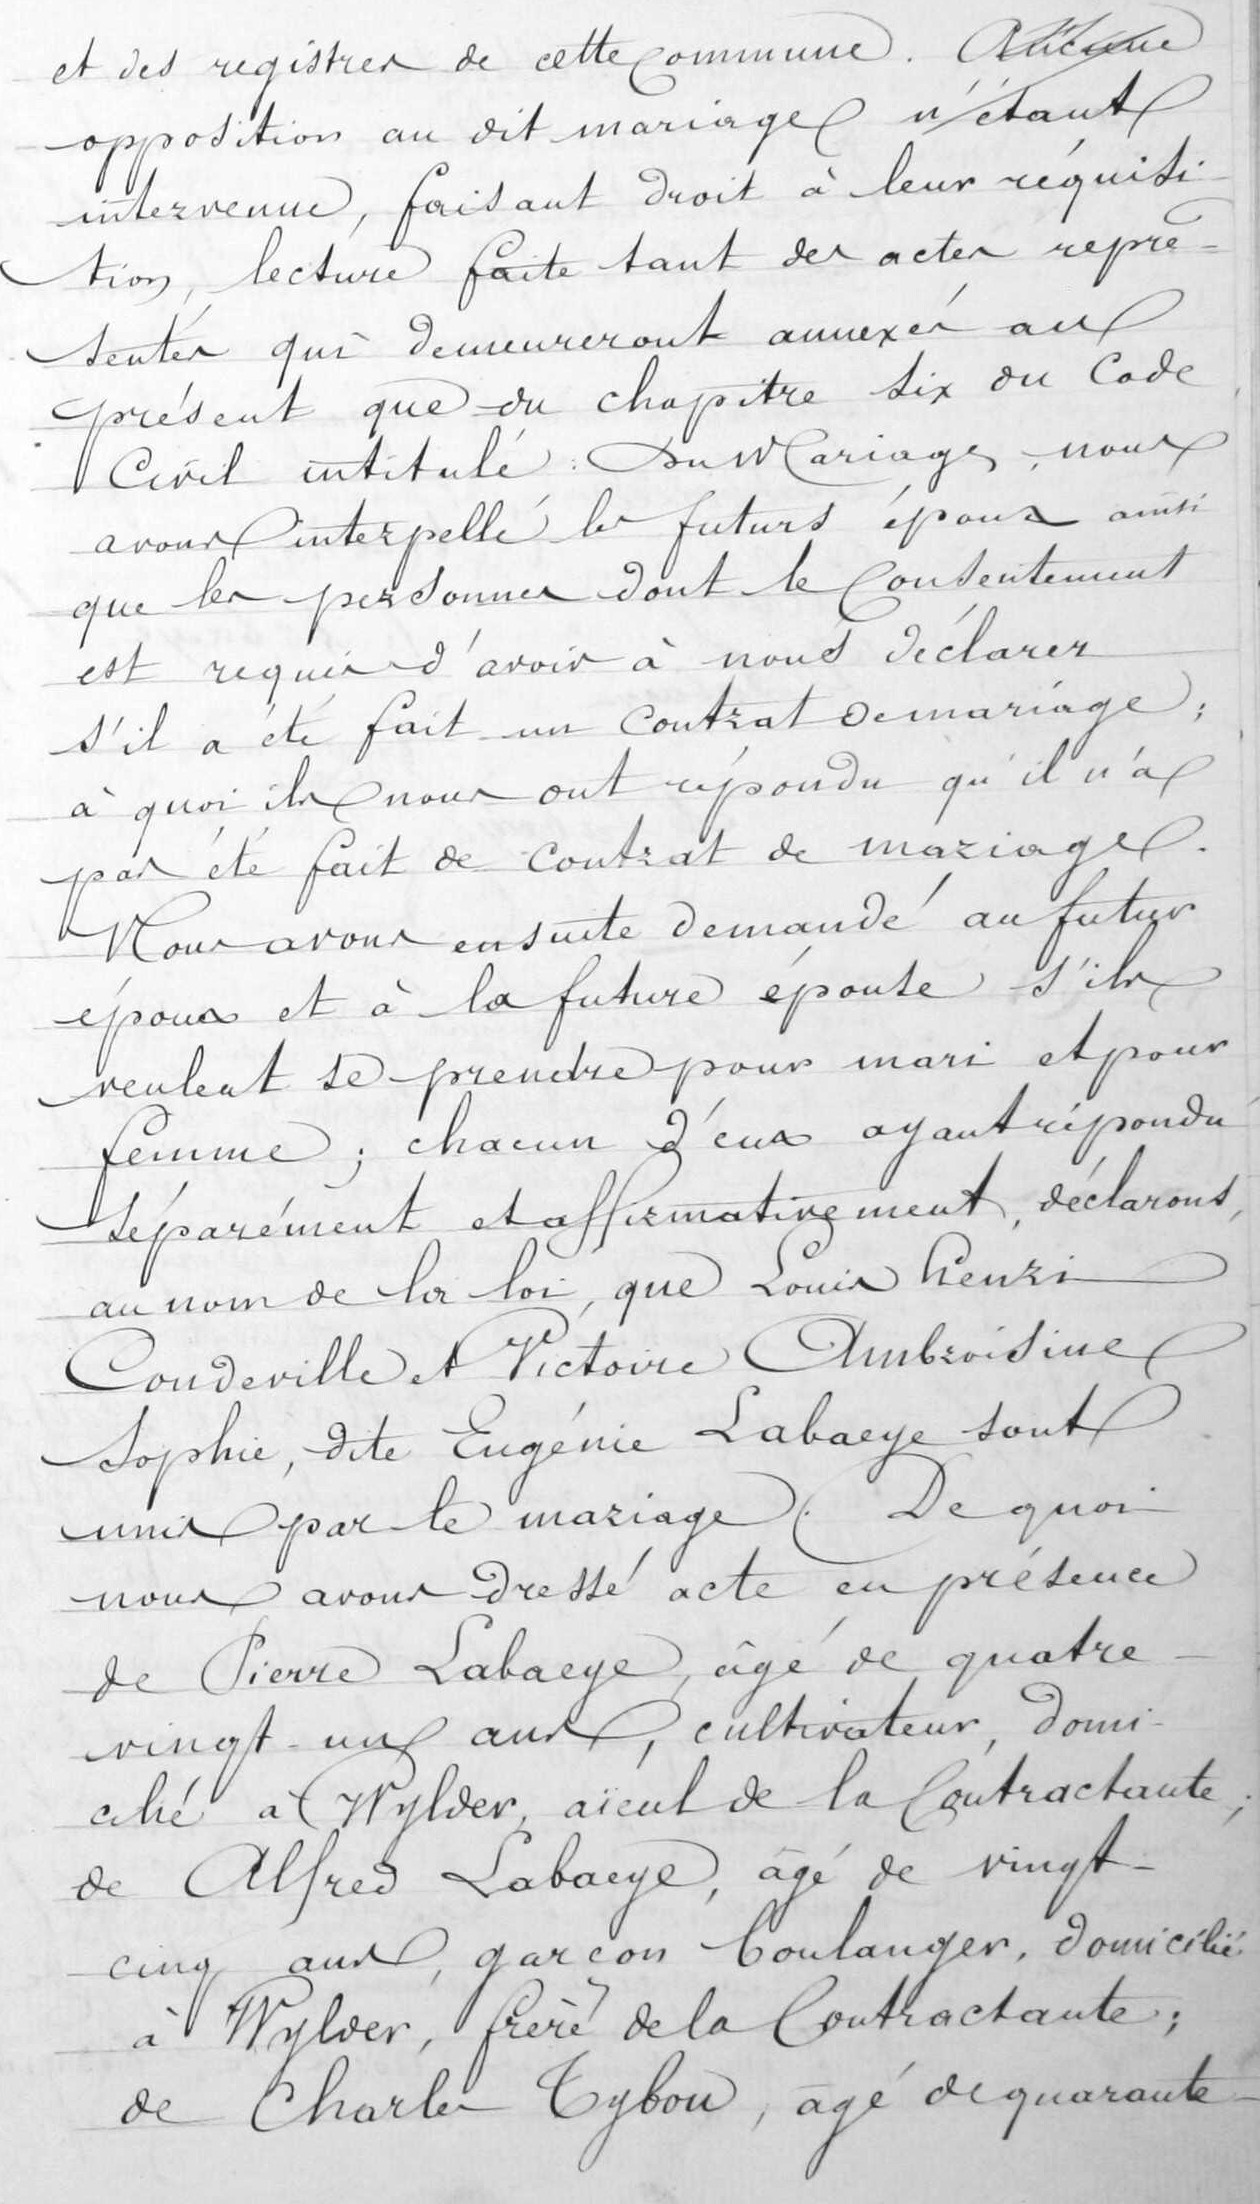 et des registres de cette Commune. Aucune
opposition au dit mariage n'étant
intervenue, faisant droit à leur réquisi-
tion, lecture faite tant des actes repré-
sentés qui demeureront annexés au
présent que du chapitre six du Code
Civil intitulé : Du Mariage, nous
avons interpellé les futurs époux ainsi
que les personnes dont le Consentement
est requis d'avoir à nous déclarer
s'il a été fait un Contrat de mariage ;
à quoi ils nous ont répondu qu'il n'a
pas été fait de Contrat de mariage.
Nous avons ensuite demandé au futur
époux et à la future épouse s'ils
veulent se prendre pour mari et pour
femme ; chacun d'eux ayant répondu
séparément et affirmativement, déclarons,
au nom de la loi, que Louis henri
Coudeville et Victoire Ambroisine
Sophie, dite Eugénie Labaeye sont
unis par le mariage. De quoi
nous avons dressé acte en présence
de Pierre Labaeye, âgé de quatre-
vingt-un ans, cultivateur, domi-
cilié à Wylder, aïeul de la Contractante ;
de Alfred Labaeye, âgé de vingt-
cinq ans, garçon boulanger, domicilié
à Wylder, frère de la Contractante ;
de Charles Tybou, âgé de quarante-